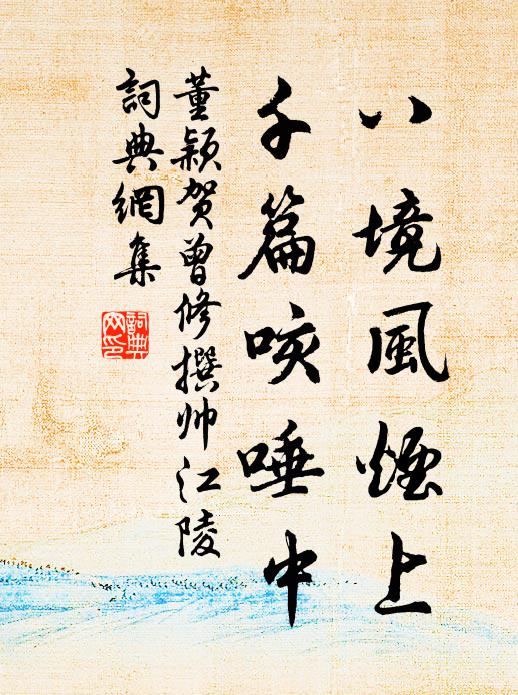 八境風煙上
千篇咳唾中
董穎賀曾修撰帅江陵
詞典網集
詞典網印